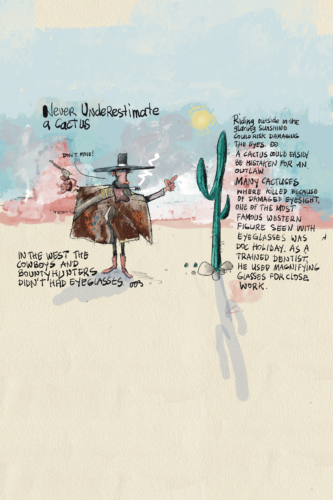 Never Underestimate
a Cactus
DON'T MOVE!
IN THE WEST THE
COWBOYS AND
BOUNTYHUNTERS
DIDN'T HAD EYEGLASSES
Riding outside in the
glaring sunshine
could risk damaging
the eyes. So
a cactus could easily
be mistaken for an
outlaw
Many cactuses
where killed because
of damaged eyesight,
one of the most
famous western
figure seen with
eyeglasses was
Doc Holiday. As a
trained dentist,
he used magnifying
glasses for close
work.